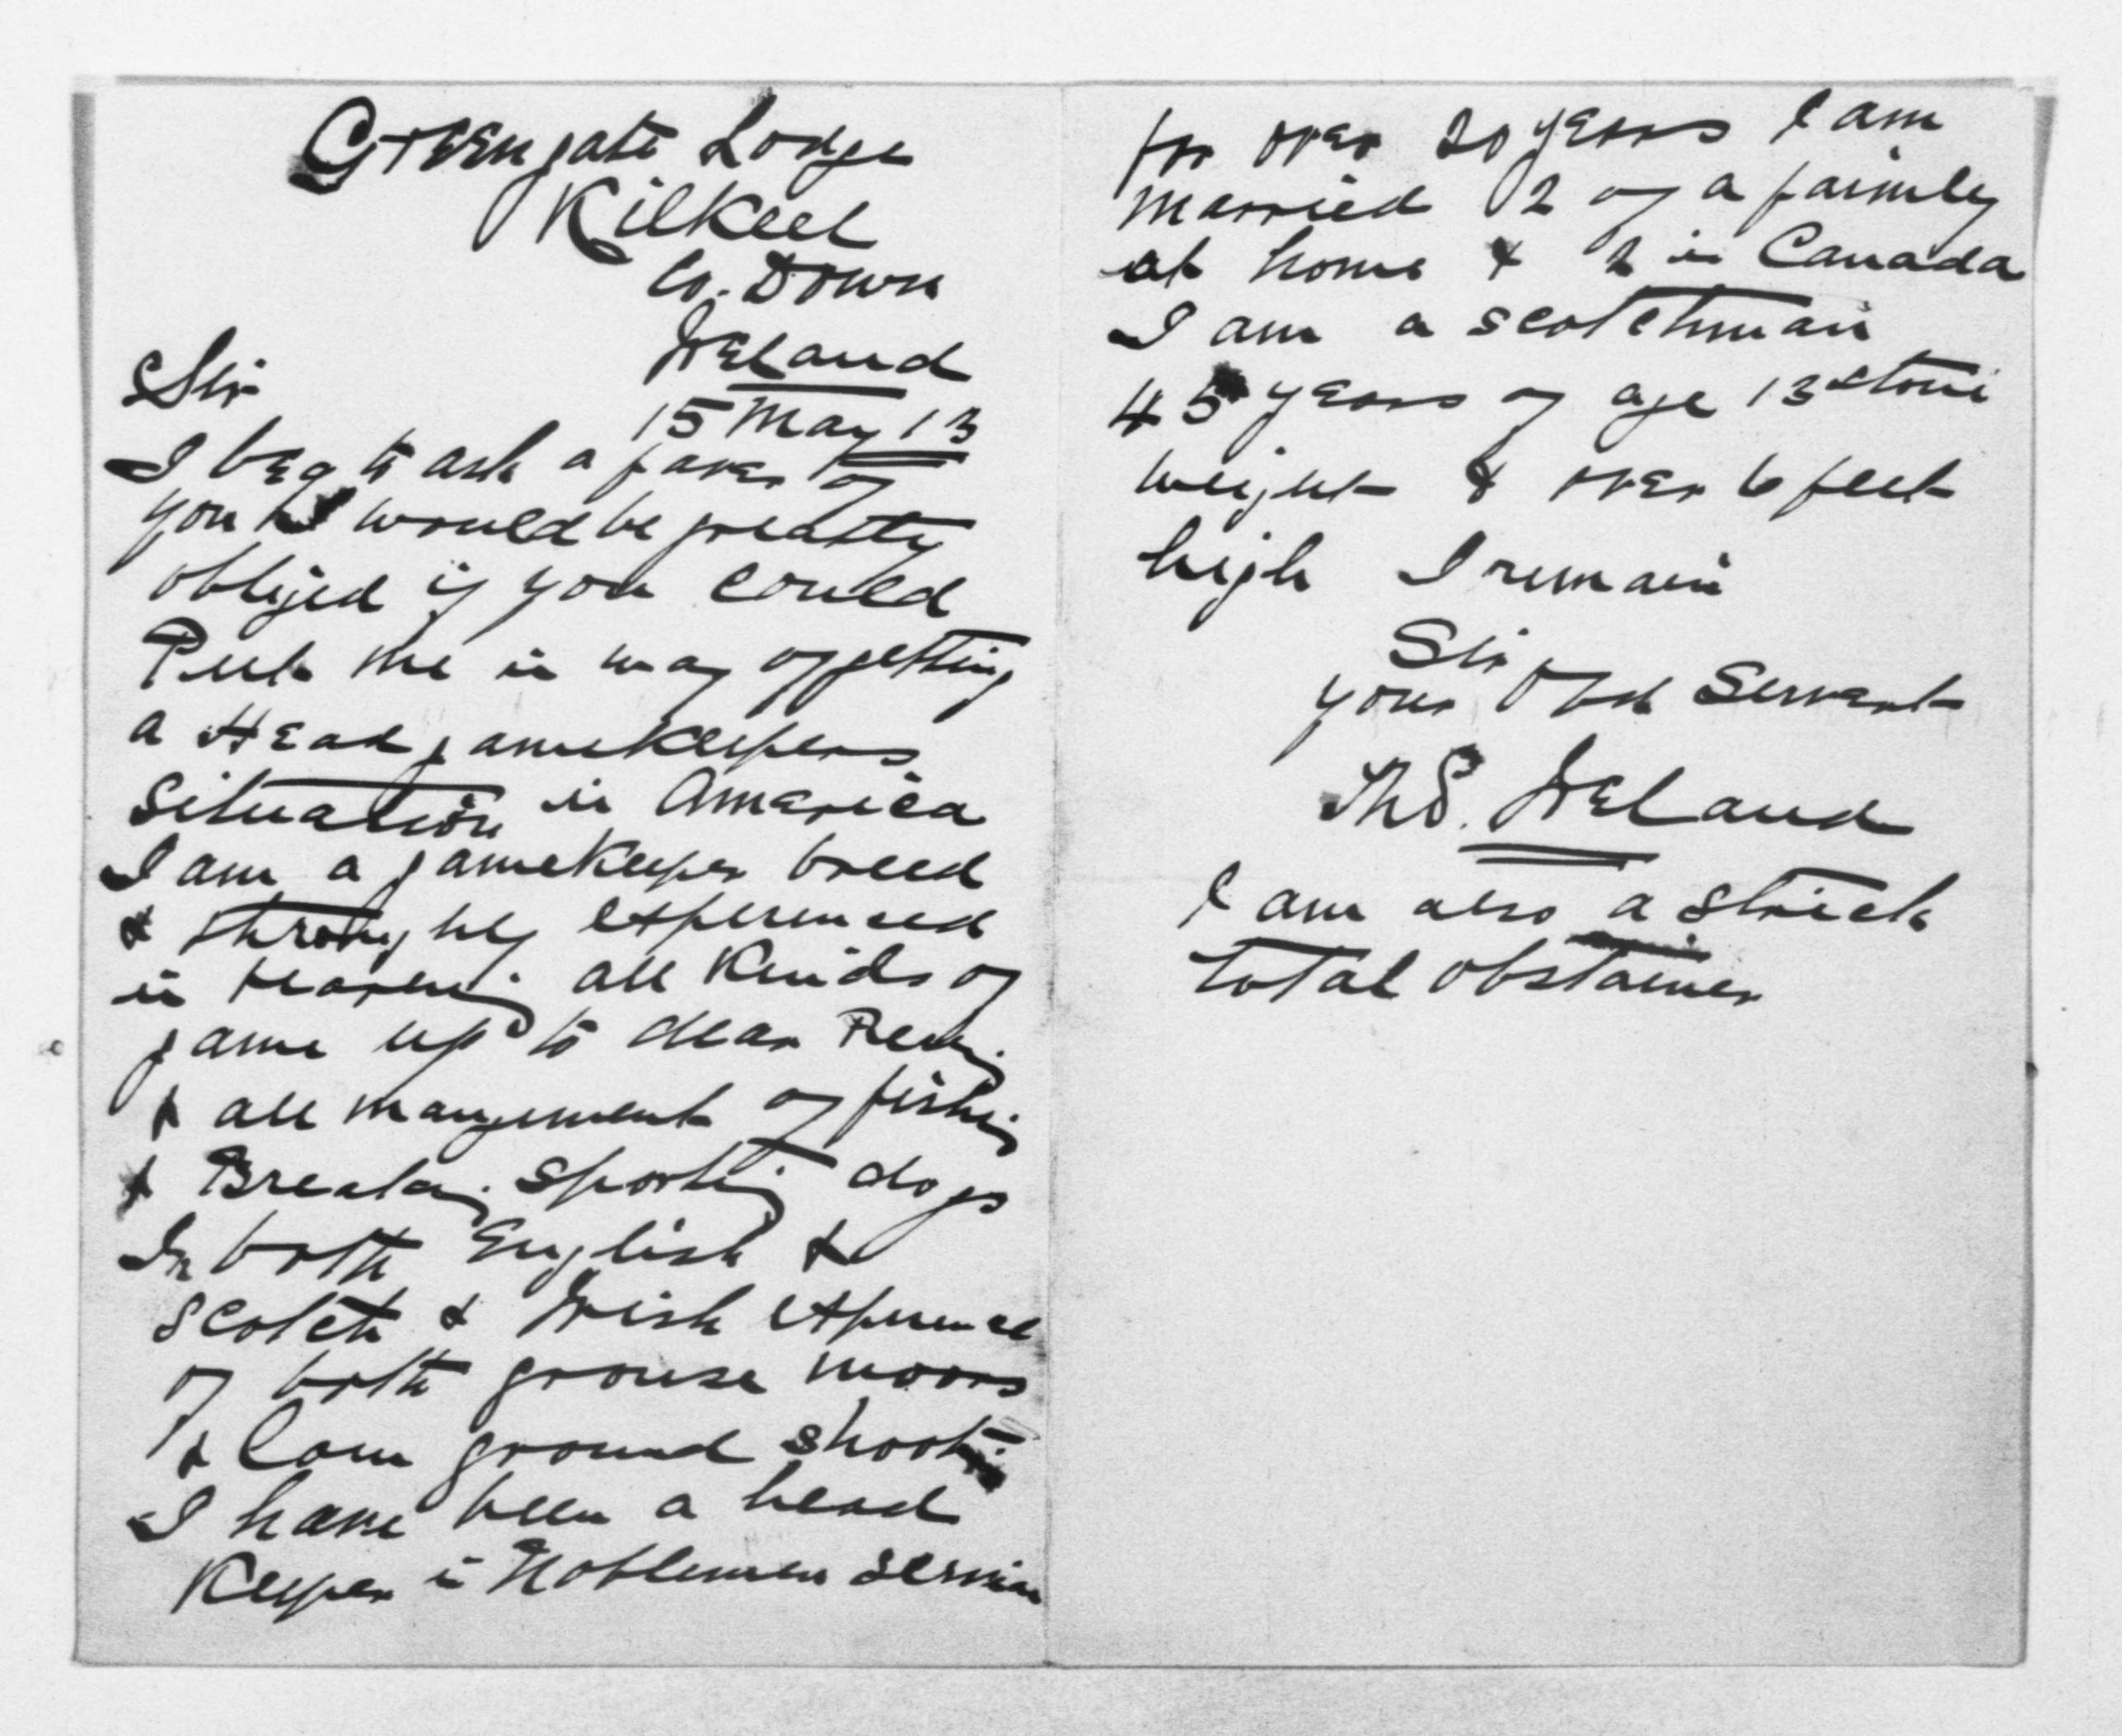 Greengate Lodge
Kilkeel
Co. Down
Ireland
15 May 13
Sir
I beg to ask a faver of
you I would be greatly
obliged if you could
Put me in way of getting
a Head gamekeepers
situation in America
I am a gamekeeper breed
& throughly experienced
in rearing all Kinds of
game up to dear
& all mangement of fishing
& Breaking sporting dogs
In both English &
Scotch & Irish experience
of both grouse moors
& low ground shooting
I have been a head
Keeper in Noblemen Service
for over 20 years I am
married 2 of a faimly
at home & 2 in Canada
I am a scotchman
45 years of age 13 stone
weight & over 6 feet
high I remain
Sir
your Obd Servant
ThS. Ireland
I am also a strick
total obstainer